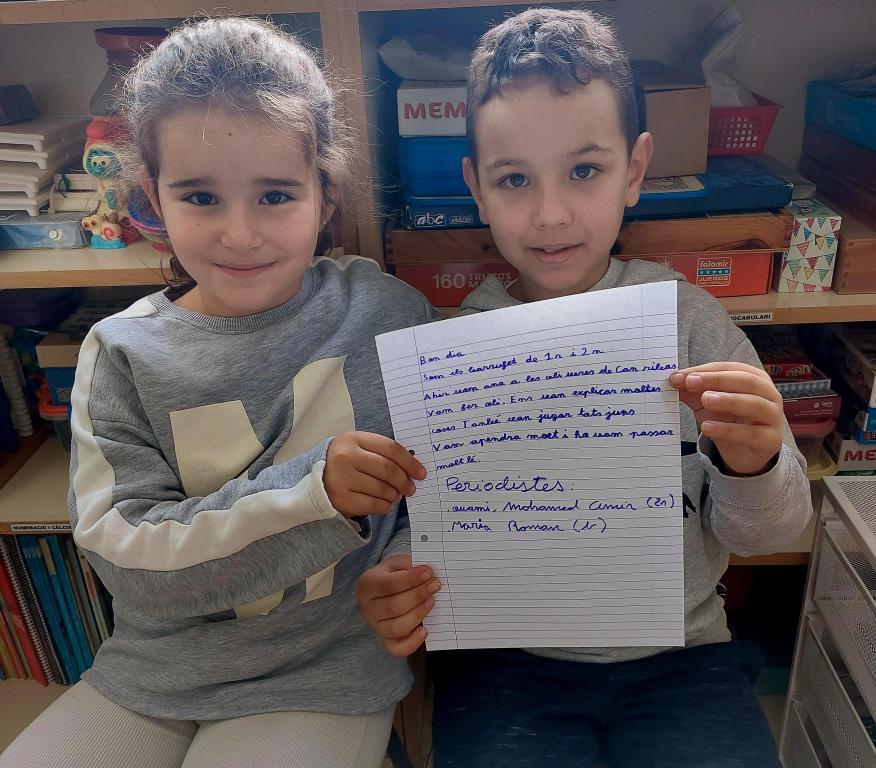 MEM
abc
160 TRU
falomir
JUEGOS
VOCABULARI
Bon dia
Som els barrufet de 1r i 2n.
Ahir vam ana a les oliveres de Can ribas
Vam fer oli. Ens van explicar moltes
coses. Tanbé van jugar tots juns
Vam apendra molt i ho vam passar
molt bé.
Periodistes:
Mohamed Amir (2n)
.Maria Roman (1r)
MEM
NUMERACIÓ I CÀLCUL